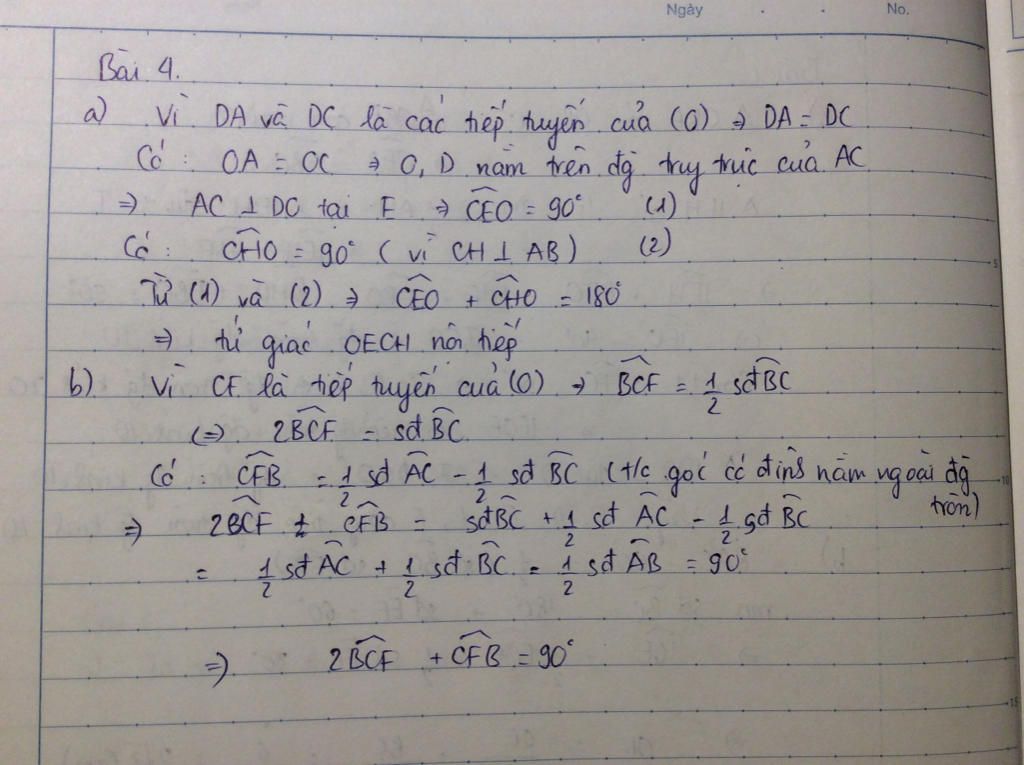 Ngày . . No.
Bài 4.
a) Vì DA và DC là các tiếp tuyến của (O) => DA = DC
Có : OA = OC => O, D nằm trên đg truy trực của AC
=> AC ⊥ DO tại E => CEO = 90° (1)
Có : CHO = 90° ( vì CH ⊥ AB ) (2)
Từ (1) và (2) => CEO + CHO = 180°
=> tứ giác OECH nôi tiếp
b) Vì CF là tiếp tuyến cuả (O) => BCF = 1/2 sđ BC
(=> 2BCF = sđ BC
Có : CFB = 1/2 sđ AC - 1/2 sđ BC (t/c goć có đỉnh nằm ngoài đg tròn)
=> 2BCF + CFB = sđ BC + 1/2 sđ AC - 1/2 sđ BC
= 1/2 sđ AC + 1/2 sđ BC = 1/2 sđ AB = 90°
=> 2BCF + CFB = 90°